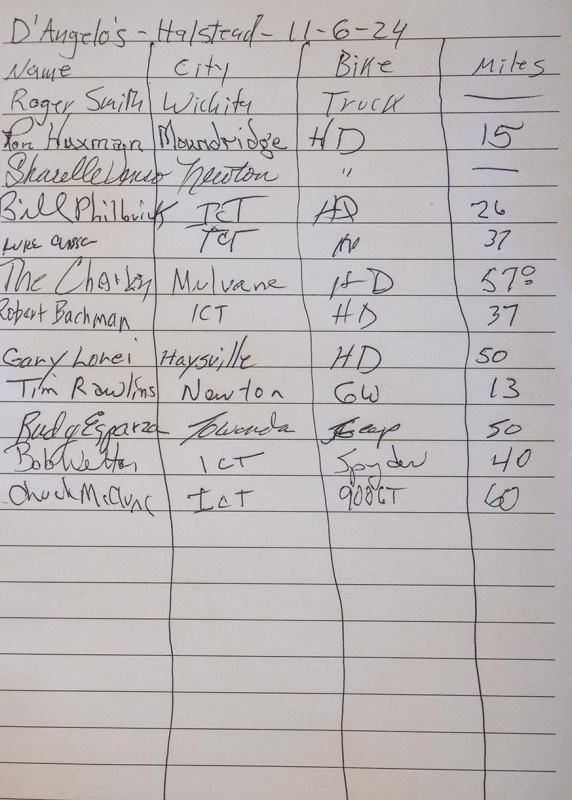 D'Angelo's - Halstead - 11-6-24
Name City Bike Miles
Roger Smith Wichita Truck —
Ron Huxman Moundridge HD 15
Sharelle Newton " —
Bill Philbrick ICT HD 26
Luke ICT HD 37
The Charley Mulvane HD 57°
Robert Bachman ICT HD 37
Gary Lorei Haysville HD 50
Tim Rawlins Newton GW 13
Rudy Esparza Towanda Jeep 50
Bob Welton ICT Spyder 40
Chuck McClung ICT 900GT 60